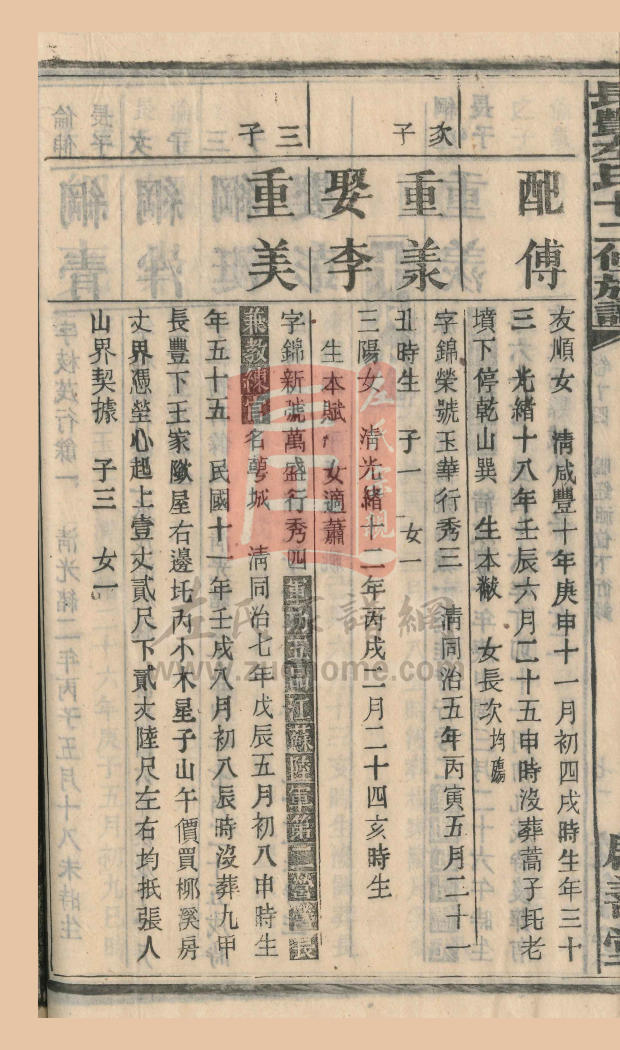 長豐李氏十二修族譜
配傅
友順女 清咸豐十年庚申十一月初四戌時生年三十
三 光緒十八年壬辰六月二十五申時沒葬蒿子圫老
墳下停乾山巽 生本黻 女長次均殤
次子
重羕
字錦榮號玉華行秀三 清同治五年丙寅五月二十一
丑時生 子一 女一
娶李
三陽女 清光緒十二年丙戌二月二十四亥時生
生本賦 女適蕭
三子
重美
字錦新號萬盛行秀四 江蘇陸軍第二營營長
兼教練官名蕚城 清同治七年戊辰五月初八申時生
年五十五 民國十一年壬戌八月初八辰時沒葬九甲
長豐下王家歘屋右邊圫內小木星子山午價買椰溪房
丈界憑塋心起上壹丈貳尺下貳丈陸尺左右均抵張人
山界契據 子三 女一
左氏家譜網
www.zuohome.com